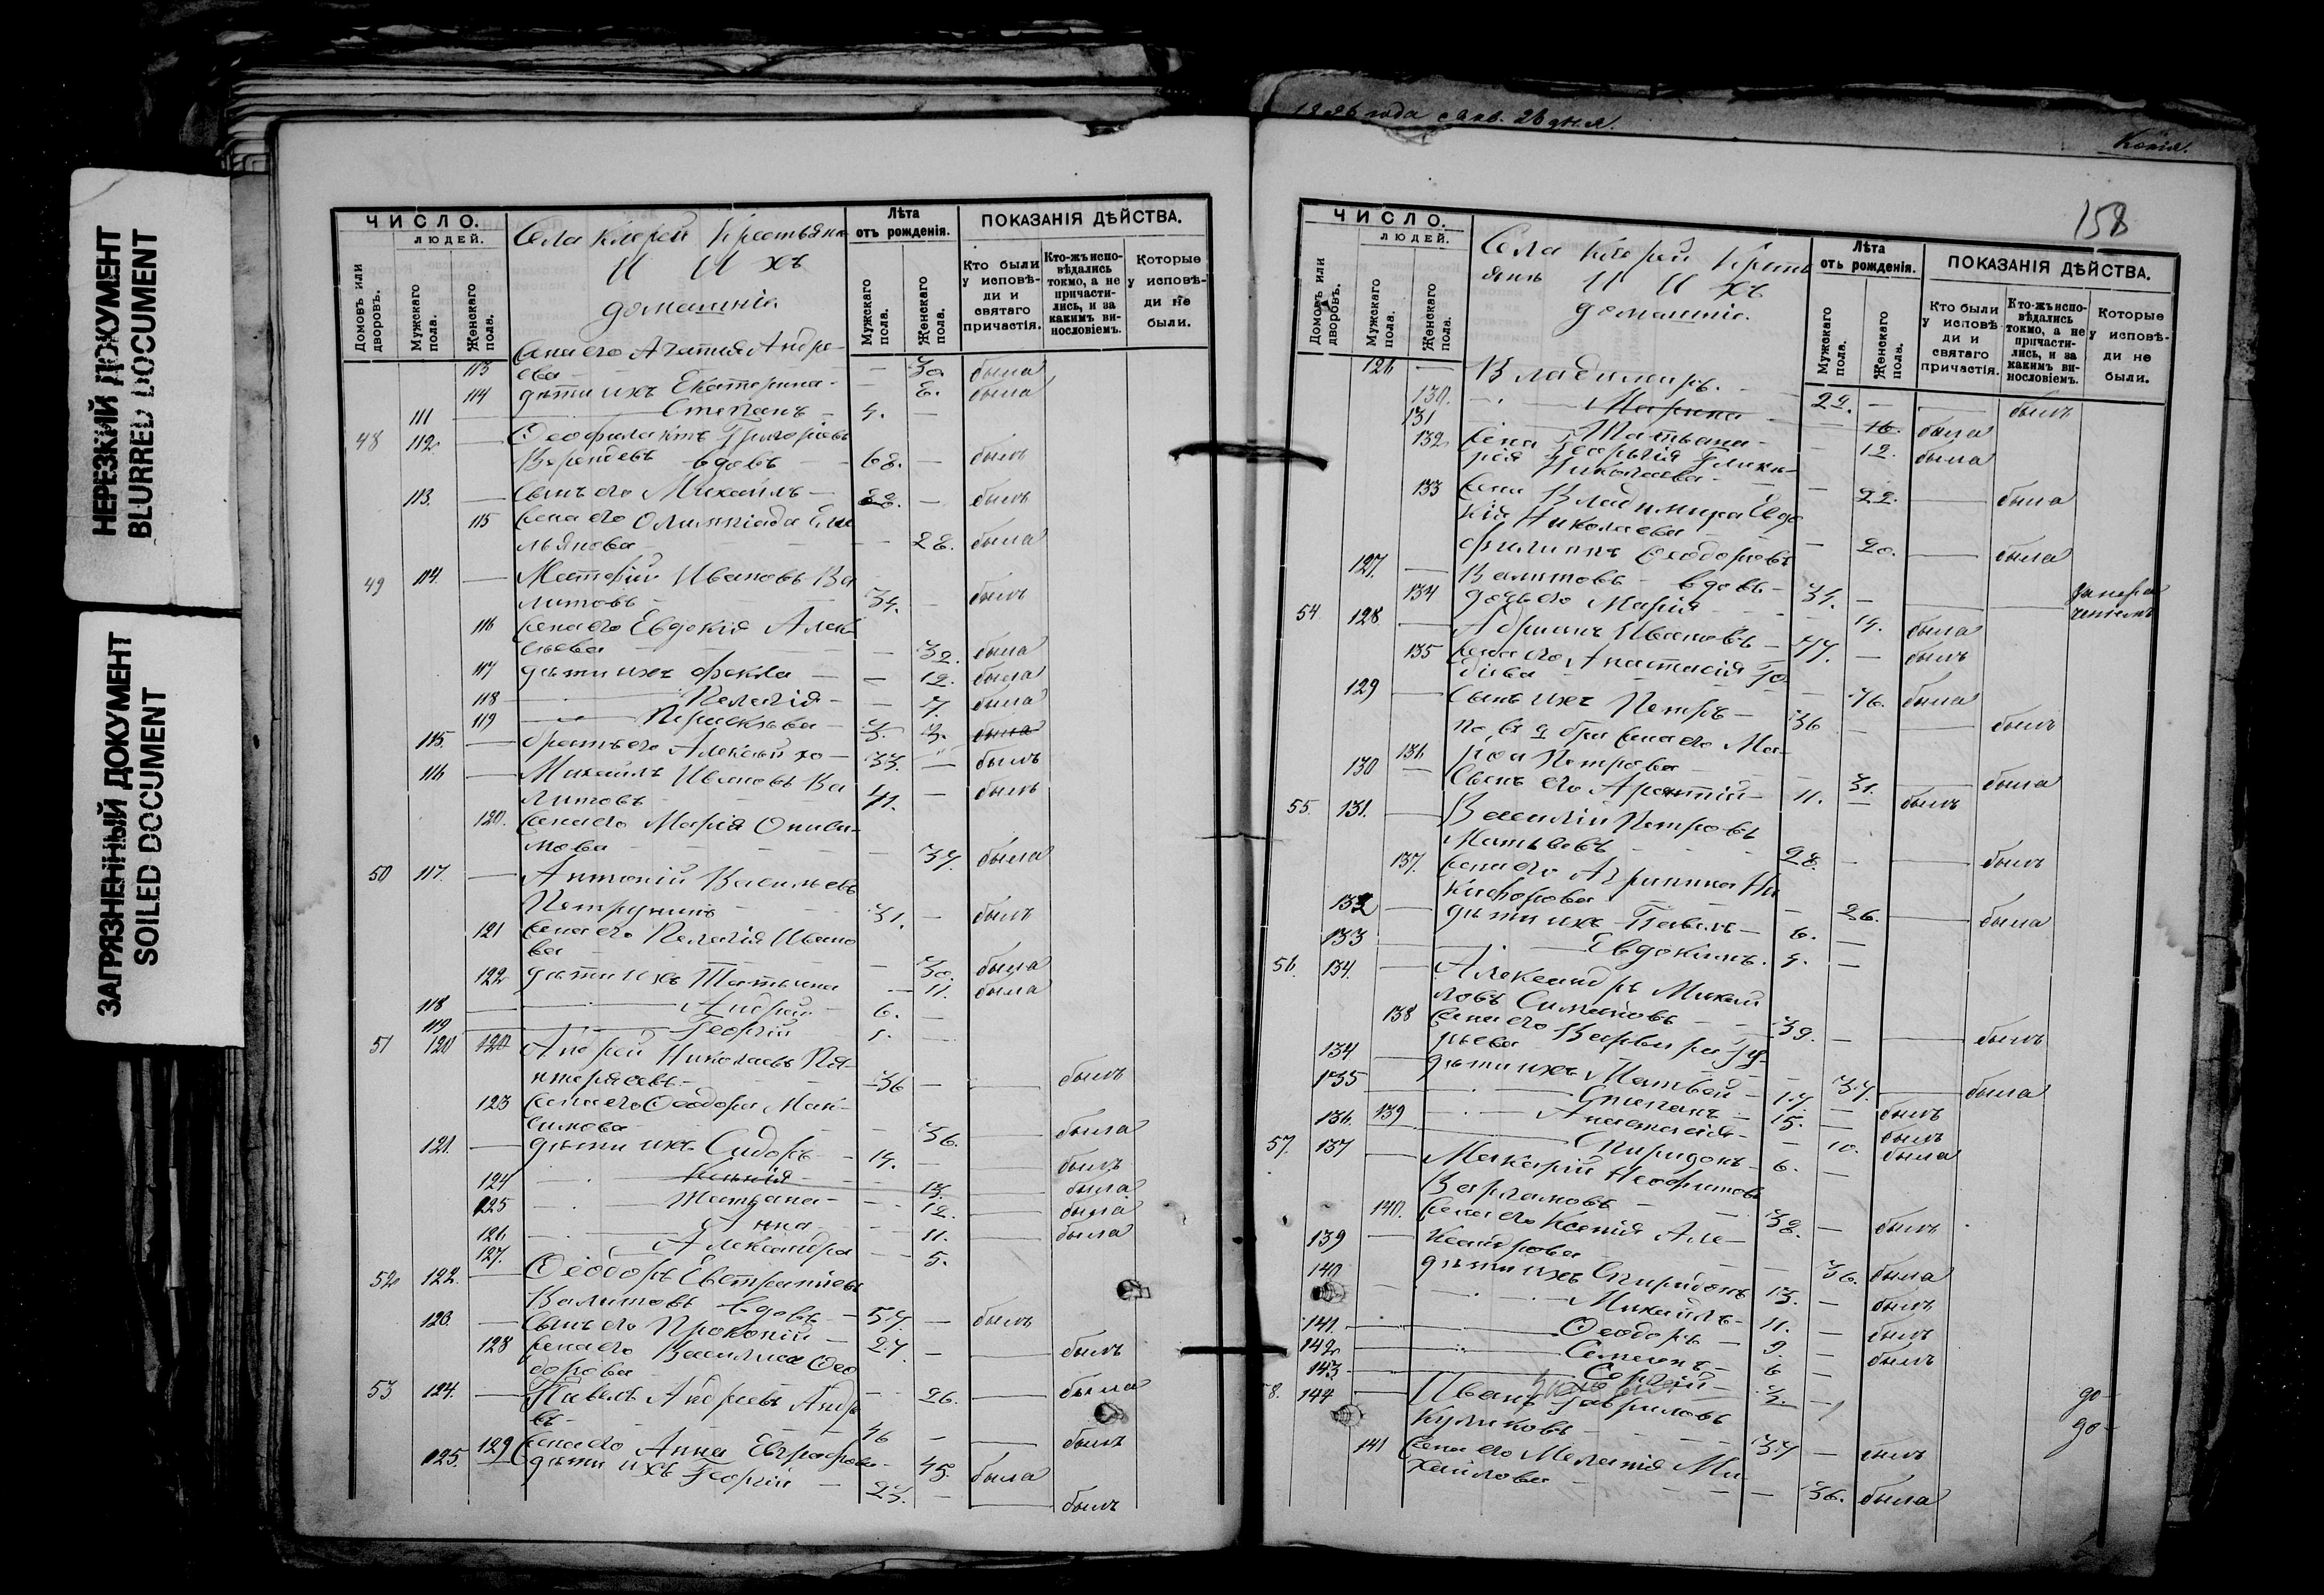 НЕРЕЗКИЙ ДОКУМЕНТ
BLURRED DOCUMENT
ЗАГРЯЗНЕННЫЙ ДОКУМЕНТ
SOILED DOCUMENT
ЧИСЛО.
ЛЮДЕЙ.
Домовъ или дворовъ.
Мужскаго пола.
Женскаго пола.
Села Крестьяне
И И хъ
домашніе
Лѣта
отъ рожденія.
Мужскаго пола.
Женскаго пола.
ПОКАЗАНІЯ ДѢЙСТВА.
Кто были у исповѣди и святаго причастія.
Кто-жъ исповѣдались токмо, а не причастились, и за какимъ винословіемъ.
Которые у исповѣди не были.
113 Жена его Агапія Андре-
ева — 30 была
114 дѣти ихъ Екатерина — 8. была
111 Стефанъ — 4. —
48 112 Ѳеофилактъ Григорьевъ
вдовъ — 68. — былъ
113. Сынъ его Михаилъ — 28. — былъ
115 Жена его Олимпіада Еме
льянова — 28. была
49 114. Матѳій Ивановъ Ва
литовъ — 34. — былъ
116 Жена его Евдокія Алек
сѣева — 32. была
117 дѣти ихъ Ѳекла — 12. была
118 Пелагія — 7. была
119 Параскева — 3. была
115. братъ его Алексѣй хо — 33. — былъ
116 Михаилъ Ивановъ Ва
литовъ — 41. — былъ
120. Жена его Марія Ониси-
мова — 37. была
50 117. Антоній Васильевъ
Петрунинъ — 31. — былъ
121 Жена его Пелагія Ивано
ва — 30. была
122 дѣти ихъ Татьяна — 11. была
118 Андрей — 6. —
119 Георгій —
51 120 Андрей Николаевъ Пан-
— 36 — былъ
123 Жена его Ѳеодора Мак-
симова — 36. была
121. дѣти ихъ Сидоръ — 14. — былъ
124 Ксенія — 13. была
125 Татьяна — 12. была
126 Анна — 11. была
127. Александра — 5.
52 122. Ѳеодоръ Евстратіевъ
Валитовъ вдовъ — 57. — былъ
123. Сынъ его Прокопій — 27. — былъ
128 Жена его Василиса Ѳео
дорова — 26. была
53 124. Павелъ Андреевъ Андре
евъ — 46 — былъ
129 Жена его Анна Евграфова — 45. была
125. дѣти ихъ Георгій — 23. — былъ
1896 года 26 дня.
Копія.
158
ЧИСЛО.
ЛЮДЕЙ.
Домовъ или дворовъ.
Мужскаго пола.
Женскаго пола.
Села Кресть
яне И И хъ
домашніе.
Лѣта
отъ рожденія.
Мужскаго пола.
Женскаго пола.
ПОКАЗАНІЯ ДѢЙСТВА.
Кто были у исповѣди и святаго причастія.
Кто-жъ исповѣдались токмо, а не причастились, и за какимъ винословіемъ.
Которые у исповѣди не были.
126 — Владимиръ. — 22. — былъ
130. Марина — 16. была
131 Татьяна — 12. была
132 Жена Георгія Глике-
рія Николаева — 22. была
133 Жена Владимира Евдо
кія Николаева — 20. была
127. Филиппъ Ѳеодоровъ
Валитовъ вдовъ — 34. —
134 дочь его Марія — 14. была
54 128. Адріанъ Ивановъ — 77. — былъ
135 Жена его Анастасія Го-
діева — 76. была
129 Сынъ ихъ Петръ — 36 — былъ
136 по 2 бра жена его Ма-
Петрова — 31. была
130 Сынъ его — 11. — былъ
55. 131. Василій Петровъ
Матвѣевъ — 28. — былъ
137. Жена его Агриппина Ни
кифорова — 26. была
132 дѣти ихъ Павелъ — 6. —
133 Евдокимъ. —
56. 134. Александръ Михай
ловъ Симаковъ — 39. — былъ
138 Жена его Варвара Гу-
рьева — 37. была
134 дѣти ихъ Матвей — 17. — былъ
135 Степанъ — 15. — былъ
139 Анастасія — 10. была
136. Спиридонъ — 6. —
57. 137 Макарій Неофитовъ
Варламовъ — 38. — былъ
140. Жена его Ксенія Але-
ксандрова — 36. была
139 дѣти ихъ Спиридонъ 13. — былъ
140 Михаилъ — 11. — былъ
141. Ѳеодоръ — 9. — былъ
142. Семенъ — 6 —
143 Сергій — 2. —
58. 144 Иванъ Гавриловъ
Куликовъ — 37 — былъ
141 Жена его Меланія Ми-
хайлова — 36. была
до-
до-